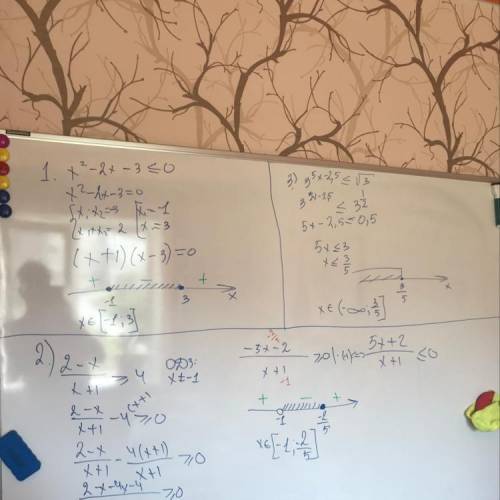 1. x² - 2x - 3 ≤ 0
x² - 2x - 3 = 0
{ x₁·x₂ = -3 [ x₁ = -1
{ x₁ + x₂ = 2 [ x = 3
(x + 1)(x - 3) = 0
+ - +
-1 3 x
x ∈ [-1, 3]
3) 3^(5x-2,5) ≤ √3
≤ 3^(1/2)
5x - 2,5 ≤ 0,5
5x ≤ 3
x ≤ 3/5
3/5 x
x ∈ (-∞, 3/5]
2) (2-x)/(x+1) ≥ 4
ОДЗ:
x ≠ -1
(2-x)/(x+1) - 4^(x+1) ≥ 0
(2-x)/(x+1) - 4(x+1)/(x+1) ≥ 0
2-x-4x-4 ≥ 0
x+1
≥ 0 | ·(-1) ⇔ (5x+2)/(x+1) ≤ 0
-1
+ - +
-1 -2/5
x ∈ [-1, -2/5]